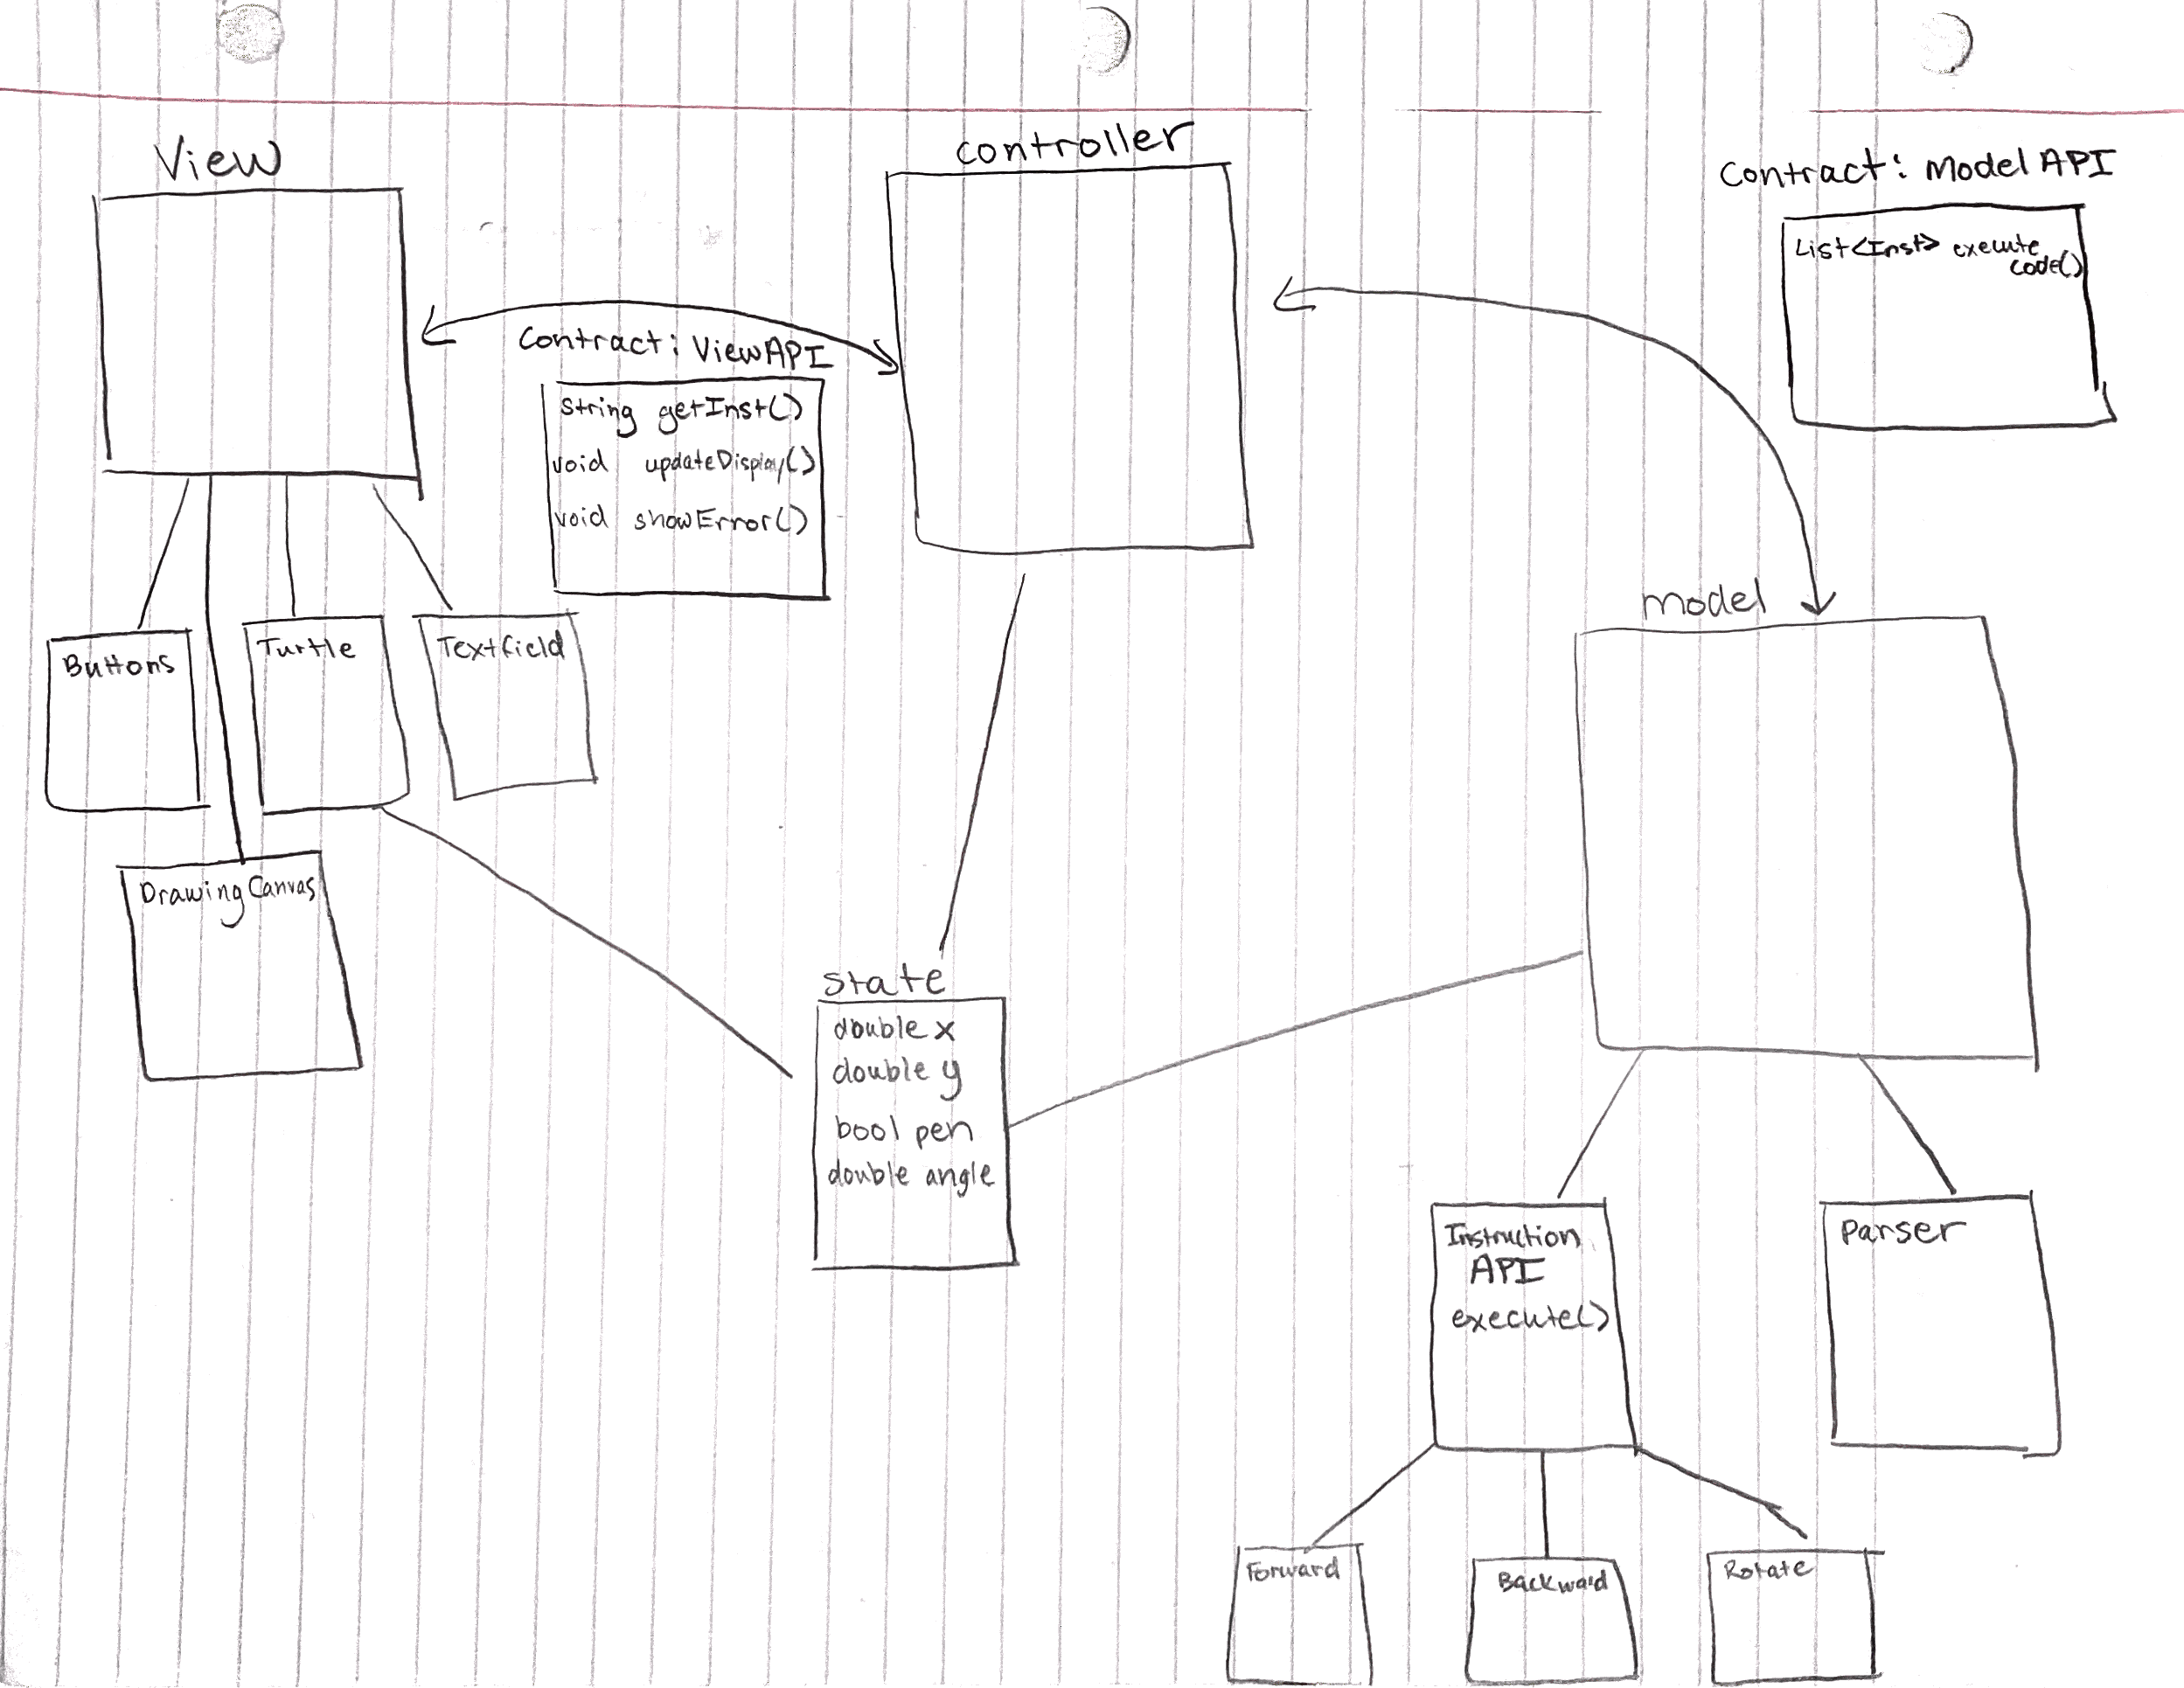 View
controller
Contract: Model API
List<Inst> execute
code()
Contract: ViewAPI
String getInst()
void updateDisplay()
void showError()
model
Buttons
Turtle
Textfield
Drawing Canvas
state
double x
double y
bool pen
double angle
Instruction
API
execute()
Parser
Forward
Backward
Rotate